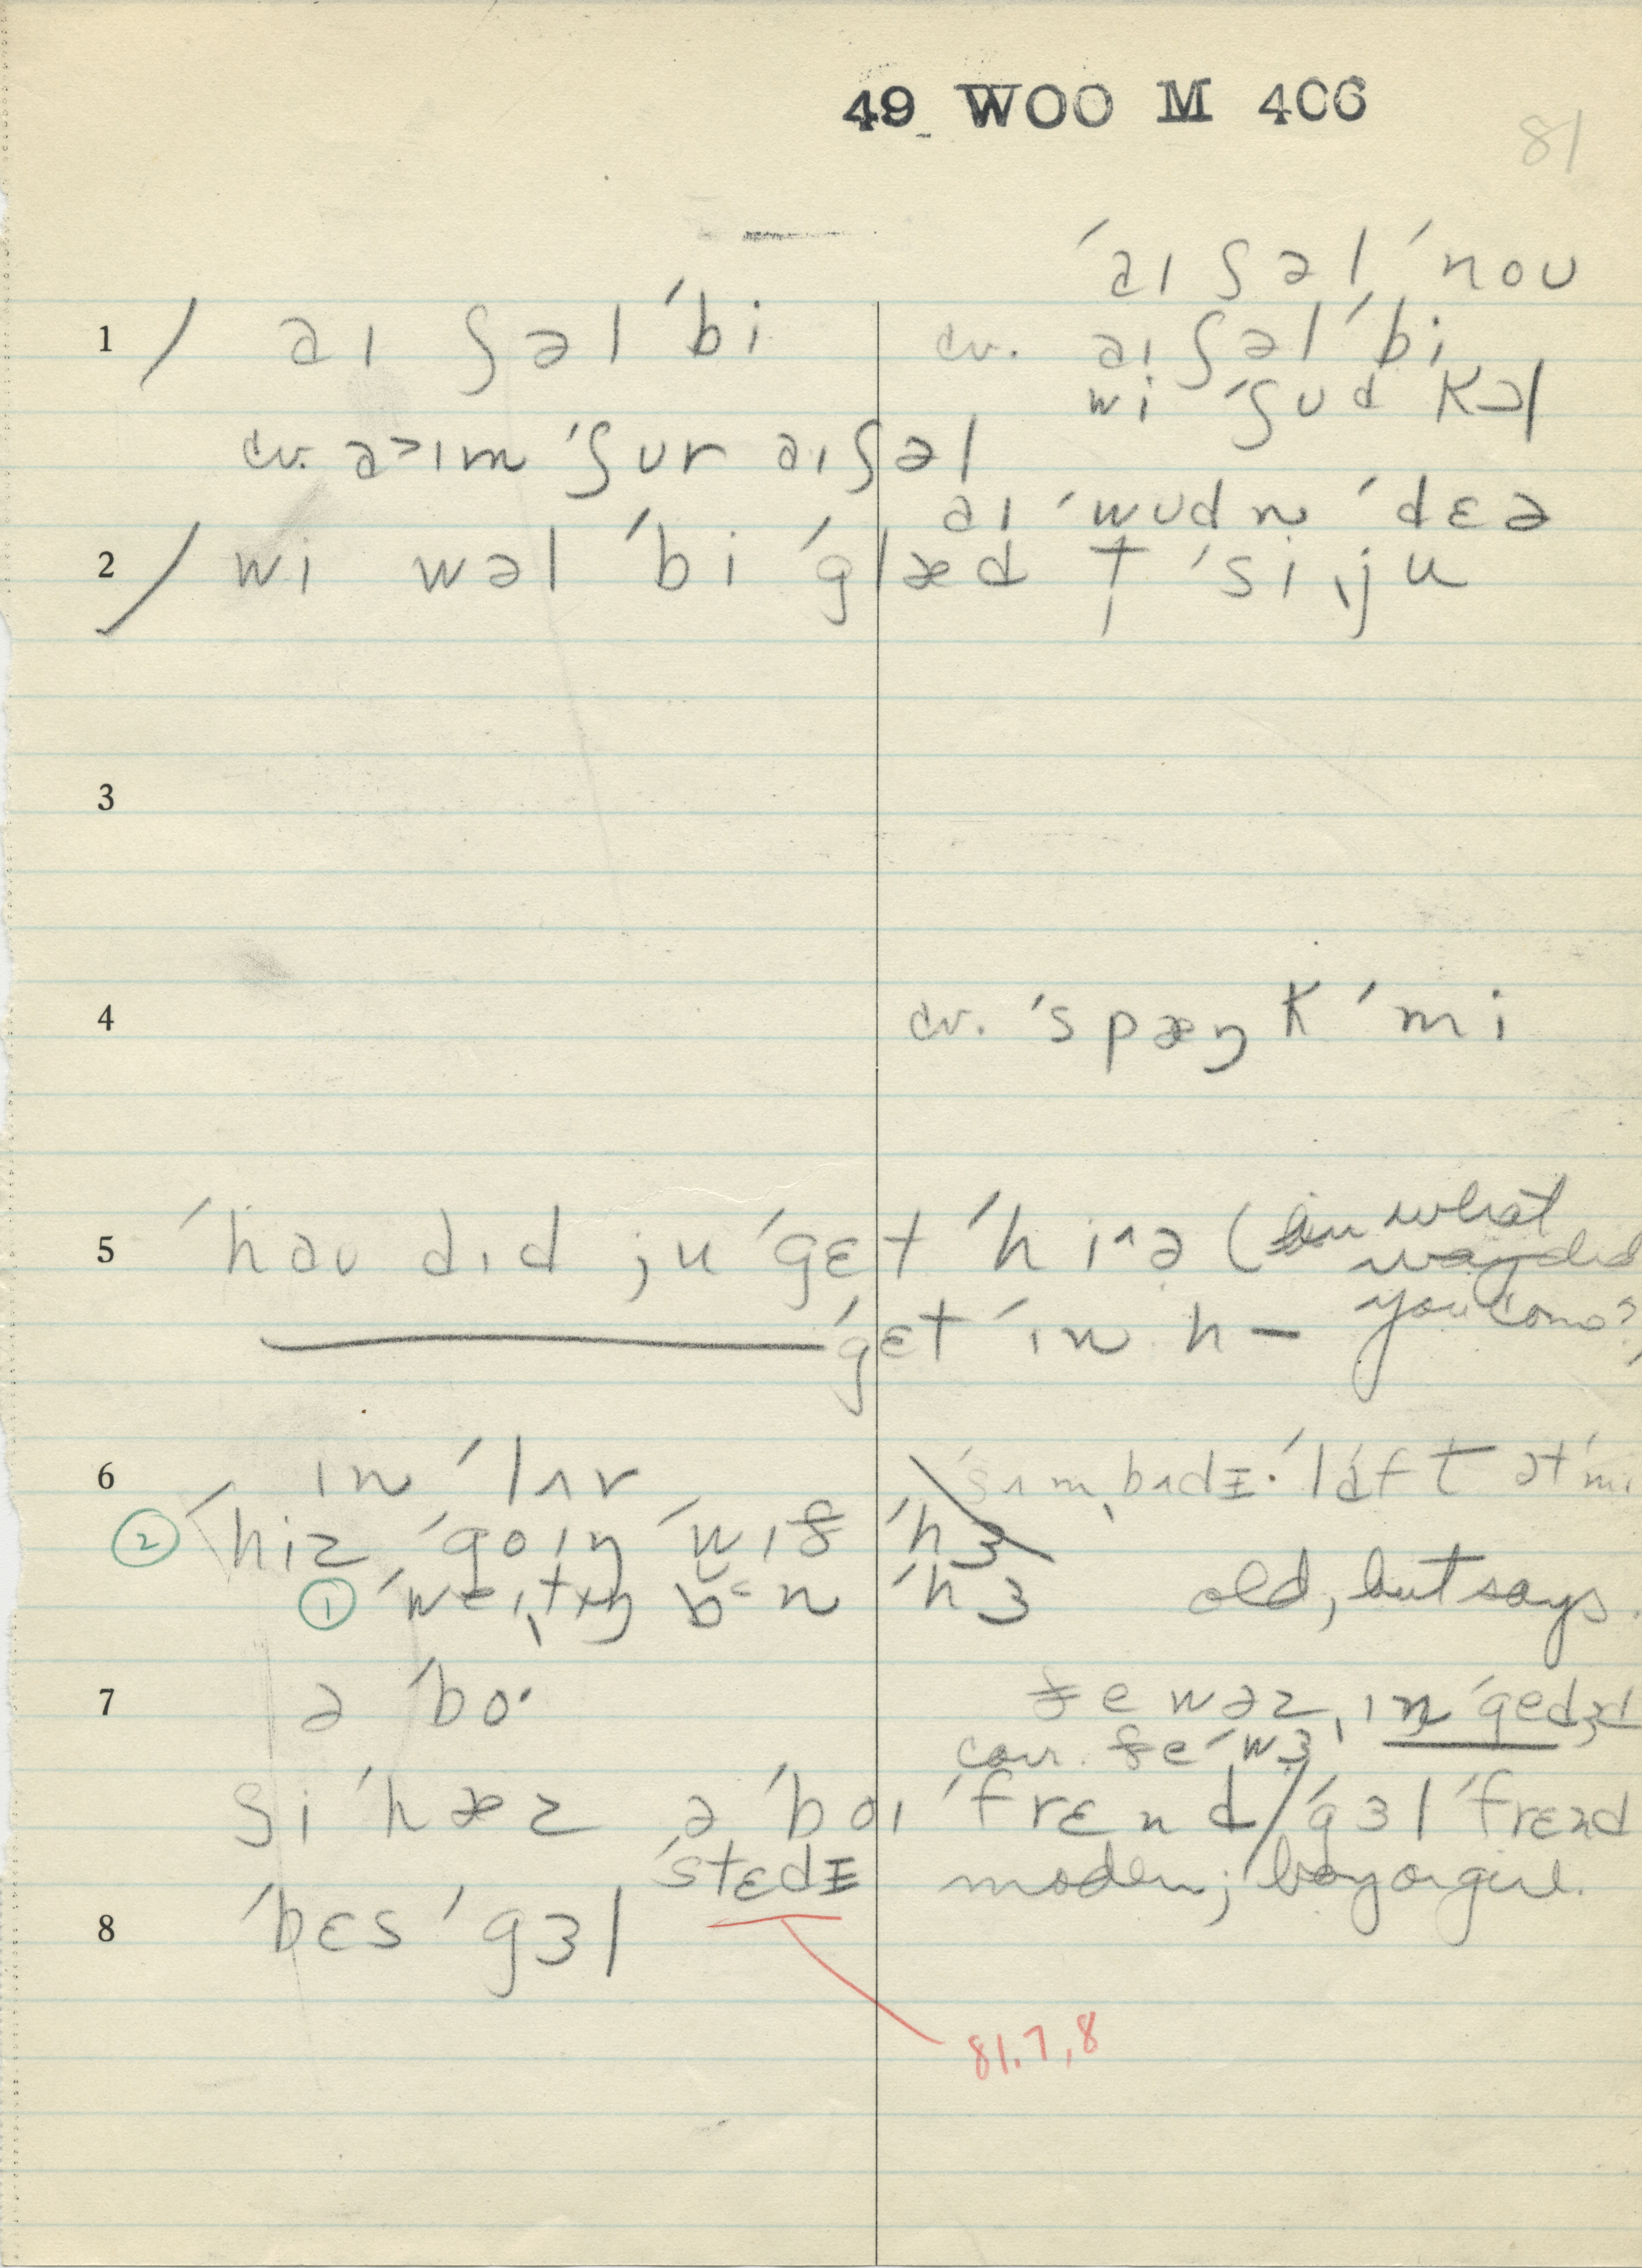 49 WOO M 406
81
ˈaɪ ʃəl ˈnoʊ
1 / aɪ ʃəl ˈbi cv. aɪ ʃəl ˈbi
wi ˈʃʊd
cv. ˈʃʊr aɪ ʃəl
aɪ ˈwʊdn̩ ˈdɛə
2 / wi wəl ˈbi ˈglæd t̩ ˈsi ˌju
3
4 cv. ˈspæŋk ˈmi
5 ˈhaʊ dɪd ju ˈgɛt ˈhi^ə (in what
way did
you come?)
ˈgɛt ˈɪn h–
6 ɪn ˈlʌv ˈsʌmˌbʌdɪ ˈlaft ət ˈmi
② ˈhiz ˈgoɪŋ ˈwɪð ˈhɜ
① ˈhɜ old, but says.
7 ə ˈbo· ðe wəz ˌɪn ˈgedʒd
corr. ðe ˈwɜ
ʃi ˈhæz ə ˈbɔɪ ˈfrɛnd / ˈgɜl ˈfrɛnd
ˈstɛdɪ modern; boy or girl.
8 ˈbɛs ˈgɜl
81.7,8